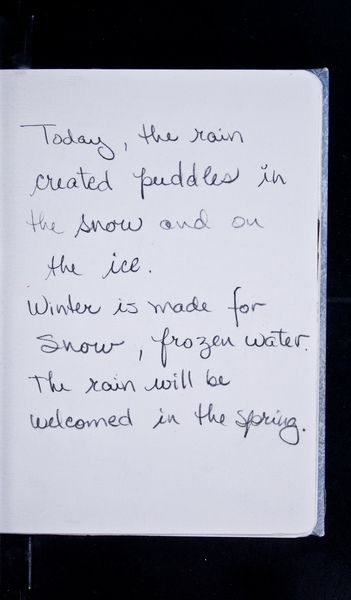 Today, the rain
created puddles in
the snow and on
the ice.
Winter is made for
snow, frozen water.
The rain will be
welcomed in the spring.